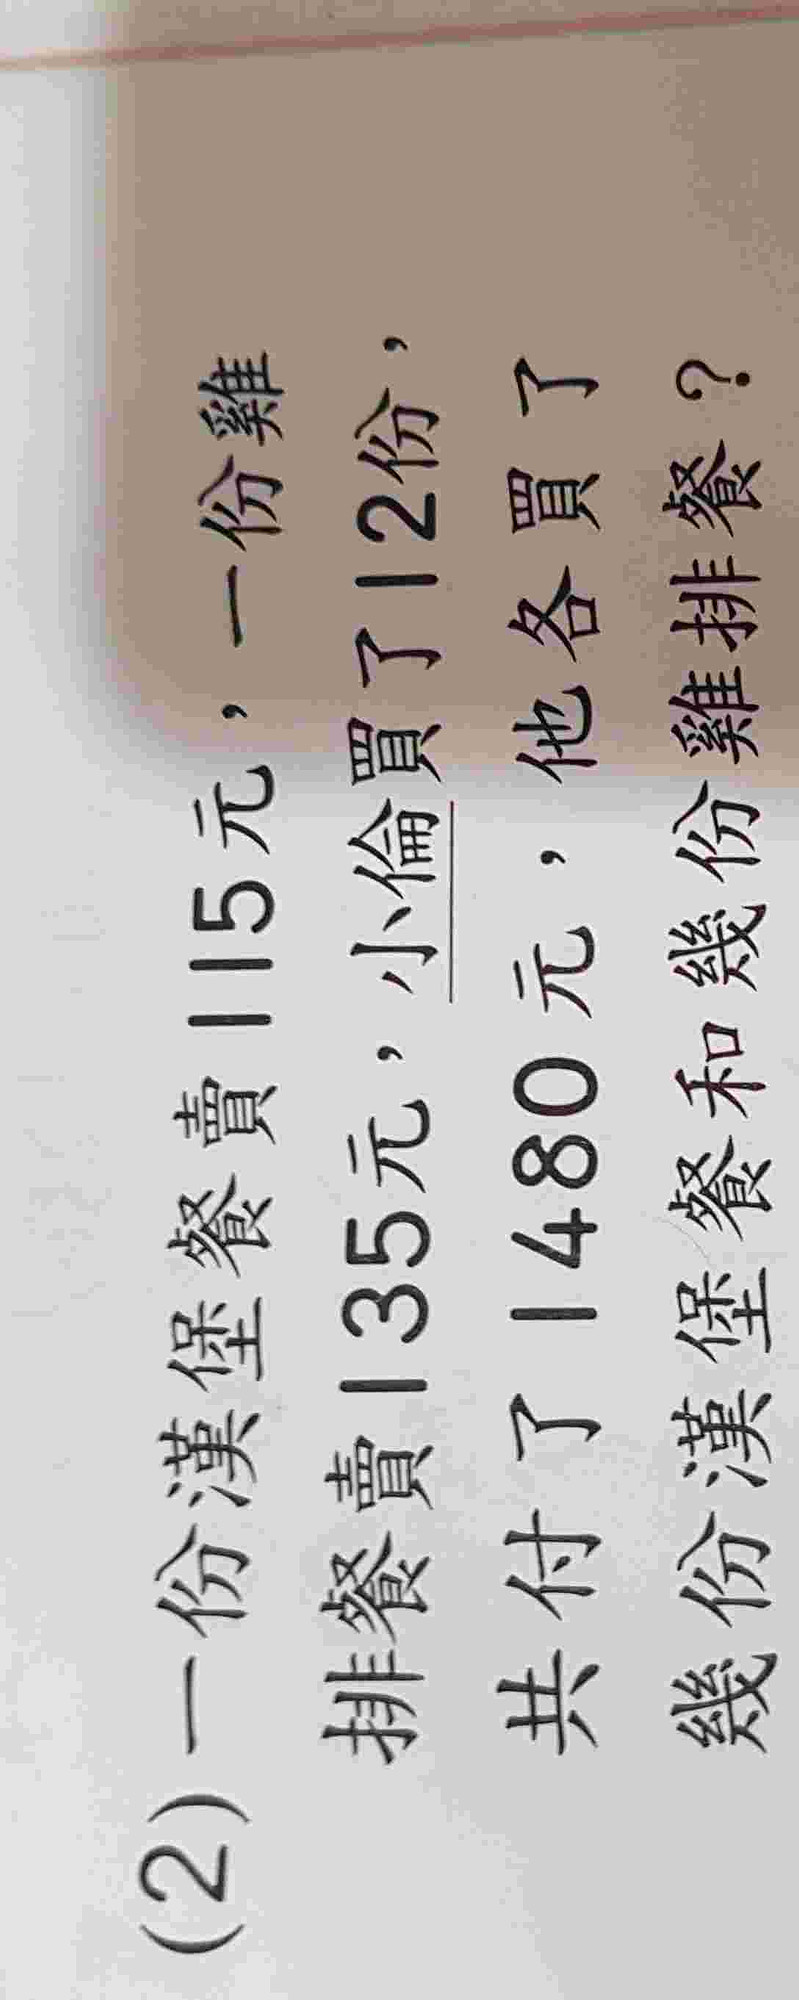 (2)一份漢堡餐賣115元，一份雞
排餐賣135元，小倫買了12份，
共付了1480元，他各買了
幾份漢堡餐和幾份雞排餐？